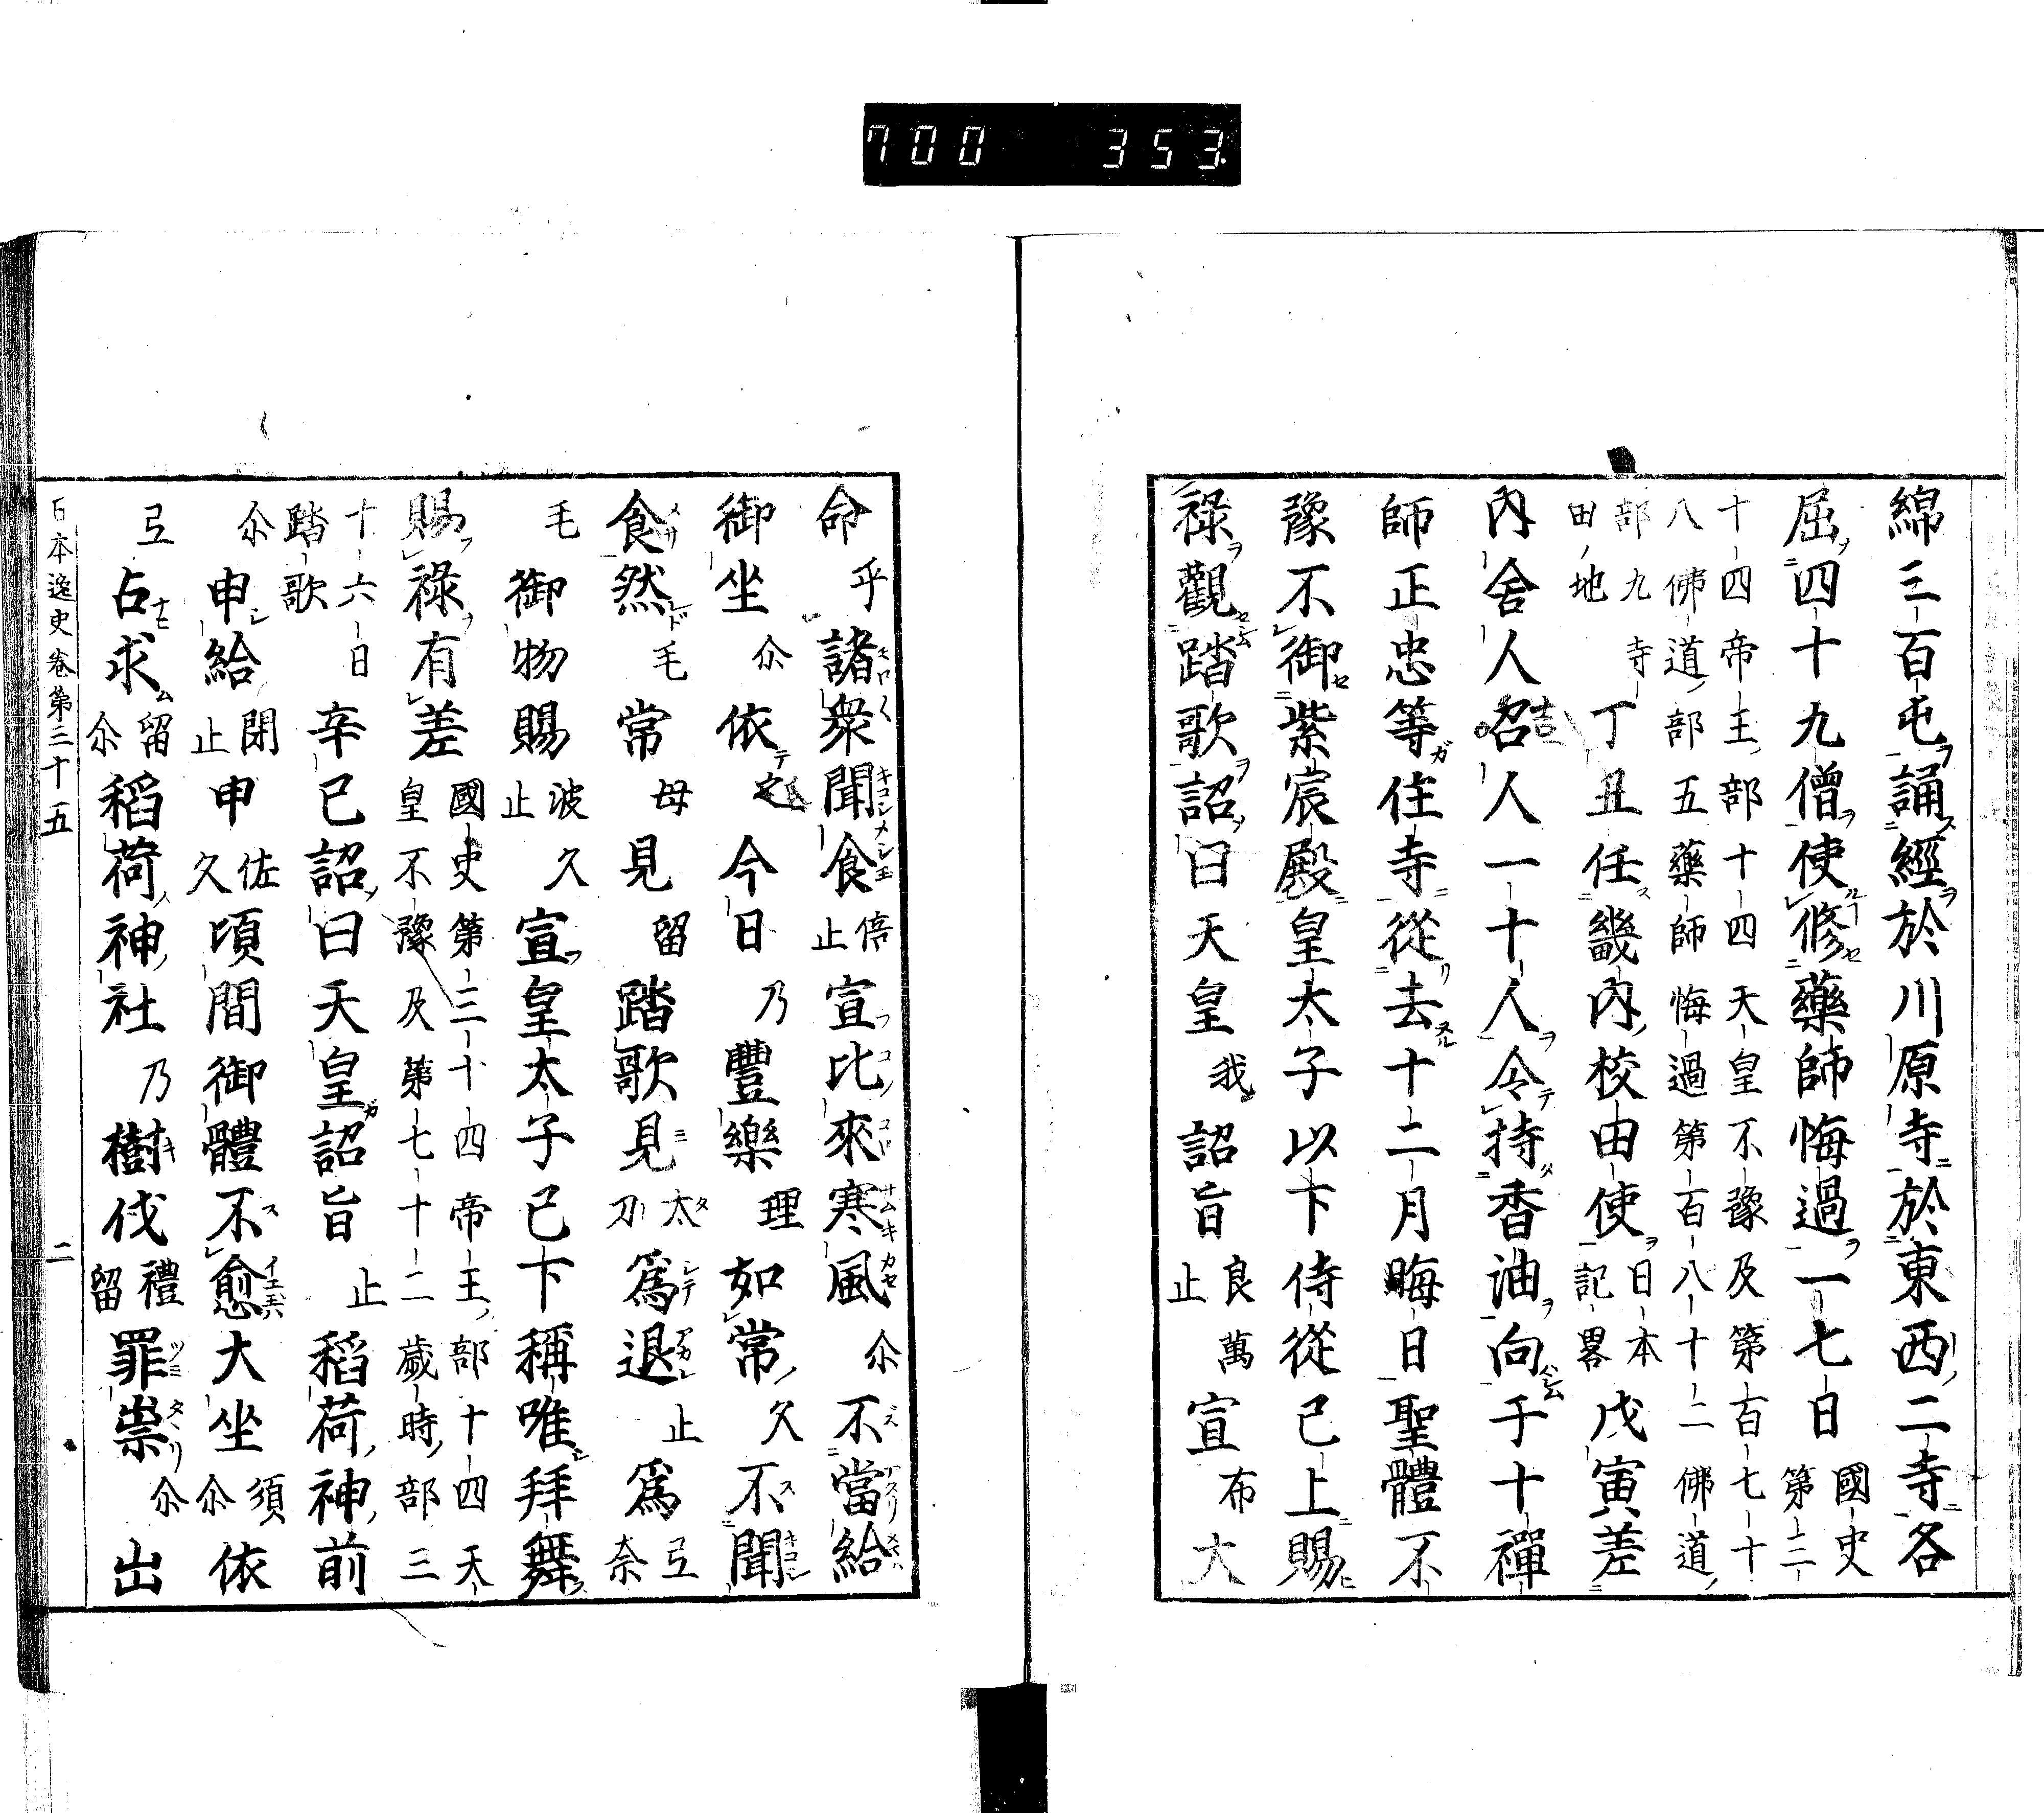 700 353
綿三百屯誦經於川原寺於東西二寺各
屈四十九僧使修藥師悔過一七日國史第三
十四帝王部十四天皇不豫及第百七十
八佛道部五藥師悔過第百八十二佛道
部九寺田地丁丑任畿內校由使日本記畧戊寅差
內舍人名人一十人令持香油向于十禪
師正忠等住寺從去十二月晦日聖體不
豫不御紫宸殿皇太子以下侍從已上賜
祿觀踏歌詔曰天皇我詔旨良萬止宣布大
命乎諸衆聞食倍止宣比來寒風尒不當給
御坐尒依弖今日乃豐樂理如常久不聞
食然毛常母見留踏歌見太刀爲退止爲弖奈
毛御物賜波久止宣皇太子已下稱唯拜舞
賜祿有差國史第三十四帝王部十四天皇不豫及第七十二歲時部三
十六日踏歌辛巳詔曰天皇詔旨止稻荷神前
尒申給閉止申佐久頃間御體不愈大坐須尒依
弖占求留尒稻荷神社乃樹伐禮留罪祟尒出
日本逸史卷第三十五
二